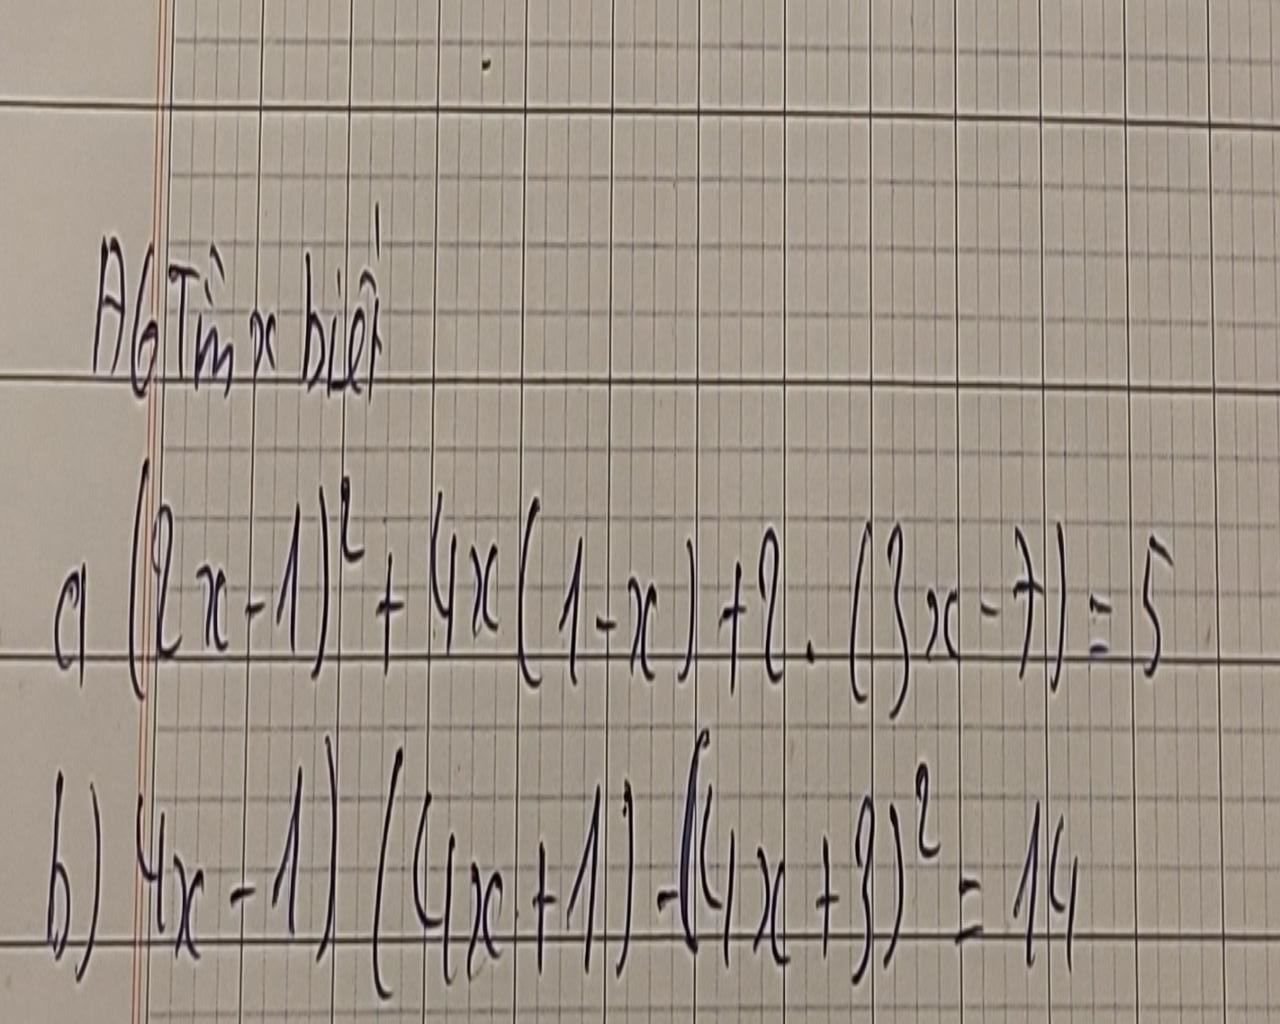 A6 Tìm x biết
a (2x-1)² + 4x(1-x) + 2. (3x-7) = 5
b) 4x-1) (4x+1) - (4x+3)² = 14